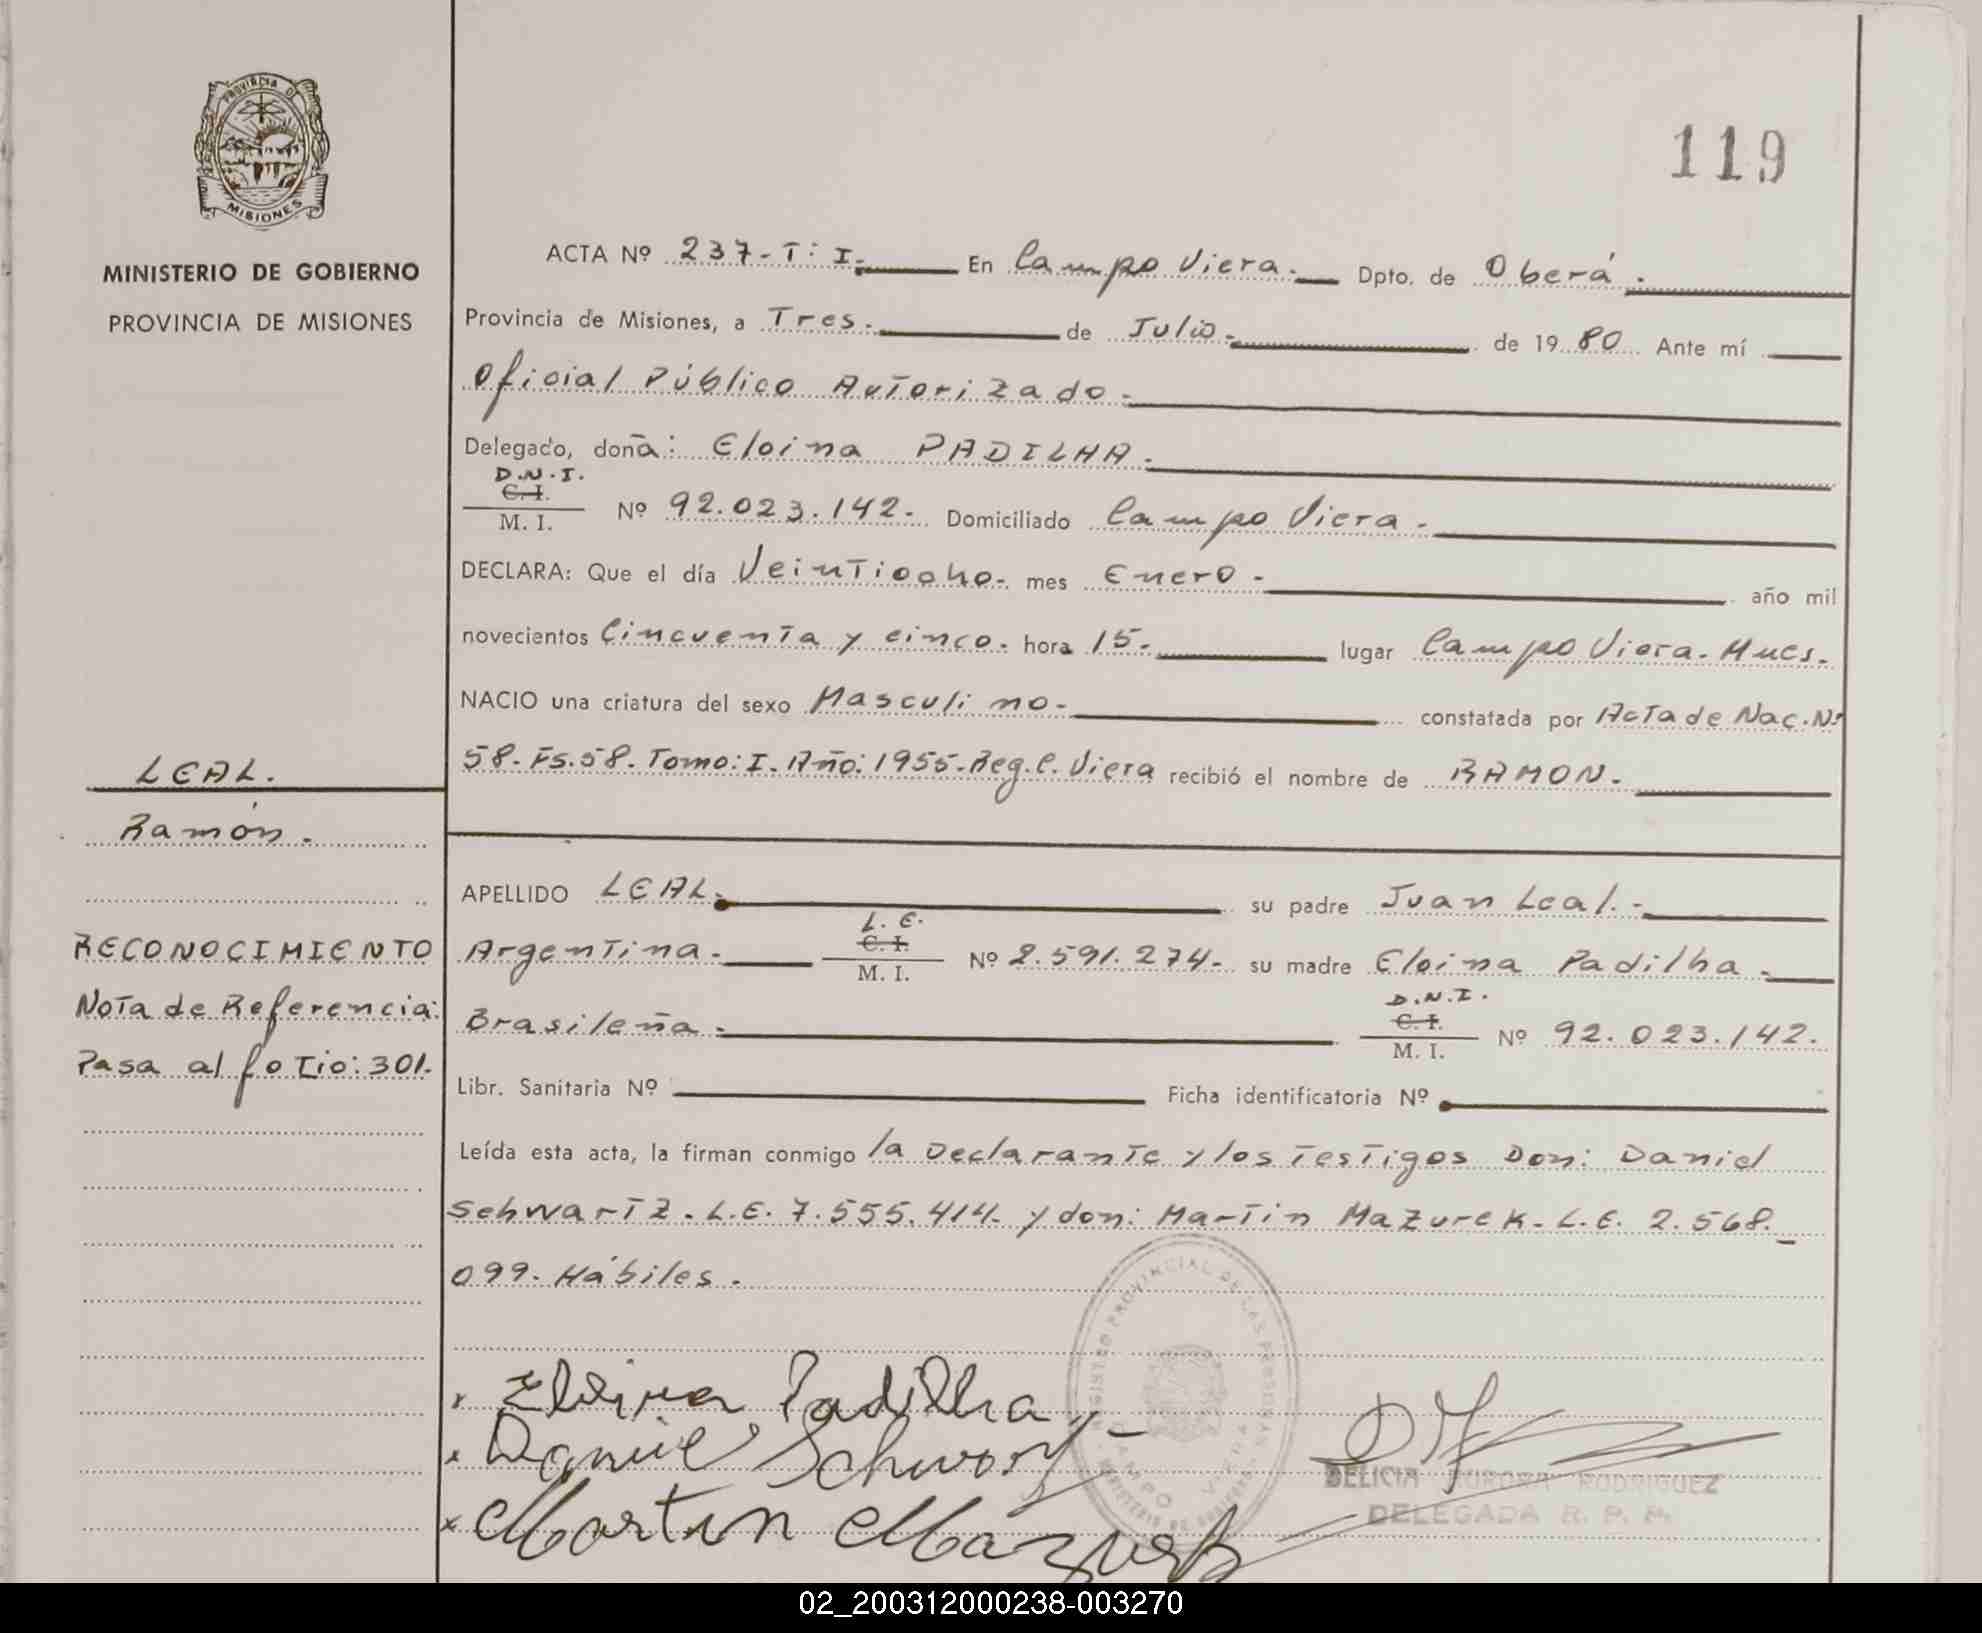 PROVINCIA D
MISIONES
MINISTERIO DE GOBIERNO
PROVINCIA DE MISIONES
119
ACTA Nº 237-T: I. En Campo Viera. Dpto. de Oberá.
Provincia de Misiones, a Tres. de Julio. de 1980 Ante mí
Oficial Público Autorizado.
Delegado, doña: Eloina PADILHA.
D.N.I.
C.I.
M. I. Nº 92.023.142. Domiciliado Campo Viera.
DECLARA: Que el día Veintiocho. mes Enero. año mil
novecientos Cincuenta y cinco. hora 15. lugar Campo Viera. Mnes.
NACIO una criatura del sexo Masculino. constatada por Acta de Nac. Nº
58. Fs. 58. Tomo: I. Año: 1955. Reg. C. Viera recibió el nombre de RAMON.
LEAL.
Ramón.
RECONOCIMIENTO
Nota de Referencia:
Pasa al folio: 301.
APELLIDO LEAL. su padre Juan Leal.
L. E.
C. I.
Argentina. M. I. Nº 2.591.274. su madre Eloina Padilha.
D.N.I.
C. I.
Brasileña. M. I. Nº 92.023.142.
Libr. Sanitaria Nº Ficha identificatoria Nº
Leída esta acta, la firman conmigo la Declarante y los Testigos Don: Daniel
Schwartz. L.E. 7.555.414. y don: Martin Mazurek. L.E. 2.568.
099. Hábiles.
REGISTRO PROVINCIAL DE LAS PERSONAS
CAMPO VIERA
MINISTERIO DE GOBIERNO
x Eloina Padilha
x Daniel Schwartz
x Martin Mazurek
DELICIA AURORA RODRIGUEZ
DELEGADA R. P. P.
02_200312000238-003270